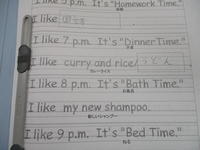 I like 5 p.m. It's "Homework Time."
I like
I like 7 p.m. It's "Dinner Time."
I like curry and rice/うどん
カレーライス
I like 8 p.m. It's "Bath Time."
お風呂
I like my new shampoo.
新しいシャンプー
I like 9 p.m. It's "Bed Time."
ねる